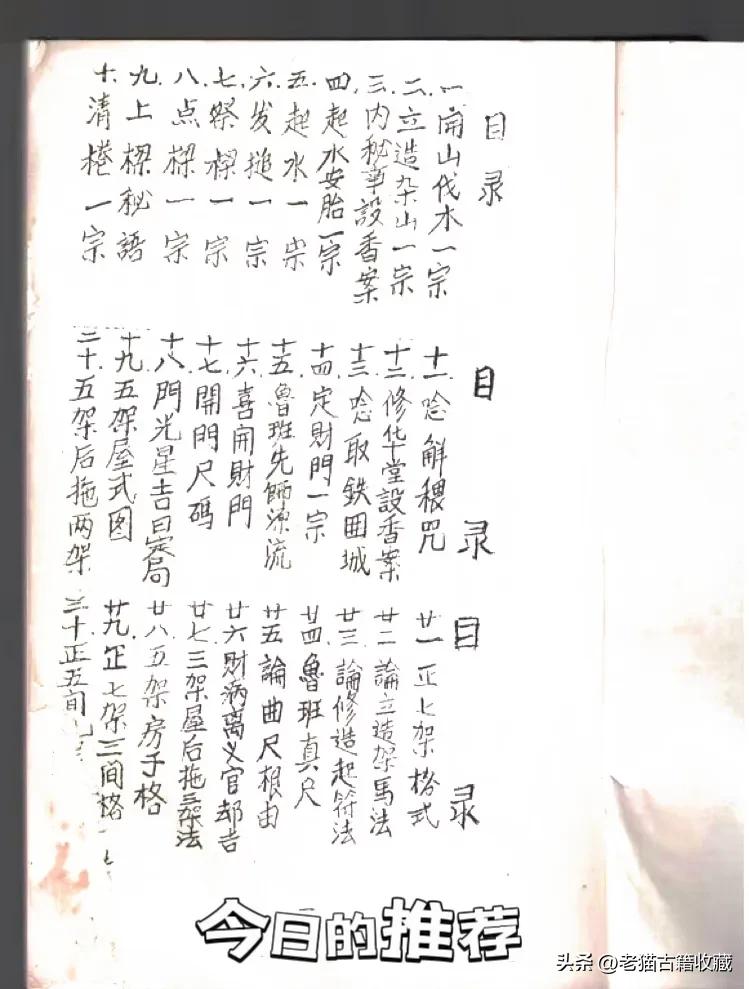 目录
一.開山伐木一宗
二.立造杂山一宗
三.内秘事設香案
四.起水安胎一宗
五.起水一宗
六.发搥一宗
七.祭樑一宗
八.点樑一宗
九.上樑秘語
十.清棬一宗
目录
十一.唸解穢咒
十二.修华堂設香案
十三.唸取鉄囲城
十四.定財門一宗
十五.魯班先師源流
十六.喜開財門
十七.開門尺碼
十八.門光星吉日寮局
十九.五架屋式图
二十.五架后拖两架
目录
廿一.正七架格式
廿二.論立造架馬法
廿三.論修造起符法
廿四.魯班真尺
廿五.論曲尺根由
廿六.財病离义官却吉
廿七.三架屋后拖三架法
廿八.五架房子格
廿九.正七架三间格
三十.正五间
今日的推荐
头条 @老猫古籍收藏